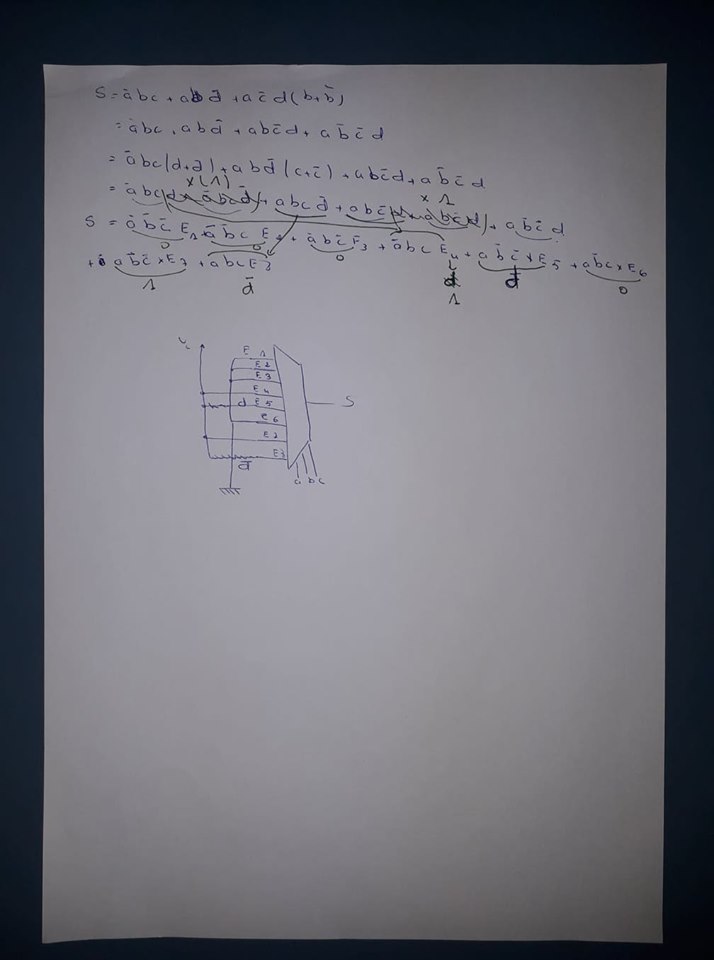 S = ābc + abd̄ + ac̄d(b+b̄)
= ābc + abd̄ + abc̄d + ab̄c̄d
= ābc(d+d̄) + abd̄(c+c̄) + abc̄d + ab̄c̄d
×(1) × 1
= ābcd + ābcd̄ + abcd̄ + abc̄d̄ + abc̄d + ab̄c̄d
S = āb̄c̄ E1 + āb̄c E2 + ābc̄ E3 + ābc E4 + ab̄c̄ × E5 + ab̄c × E6
0 0 0 d
1
+ abc̄ × E7 + abc E3
1 d̄ d 0
E1
E2
E3
E4
d E5
E6
E7
d̄ E3
S
a b c